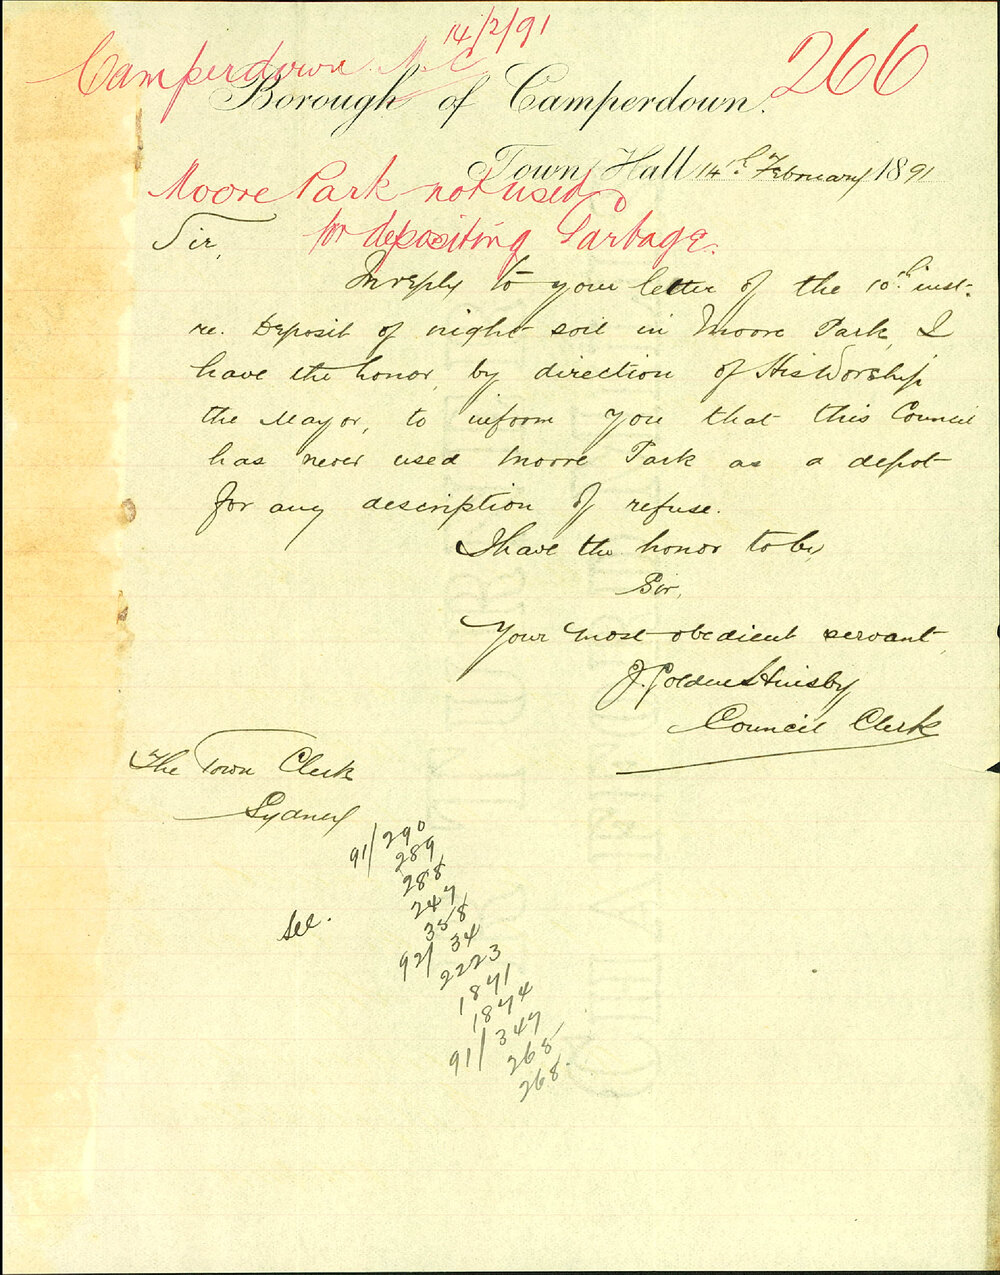 14/2/91
Camperdown M.C.
266
Borough of Camperdown.
Town Hall 14th February 1891
Moore Park not used
for depositing Garbage.
Sir,
In reply to your letter of the 10th inst.
re. Deposit of night soil in Moore Park, I
have the honor, by direction of His Worship
the Mayor, to inform you that this Council
has never used Moore Park as a depot
for any description of refuse.
I have the honor to be,
Sir,
Your most obedient servant
Council Clerk
The Town Clerk
Sydney
91/290
289
288
247
358
see.
92/34
2223
1871
1874
91/347
268
268.